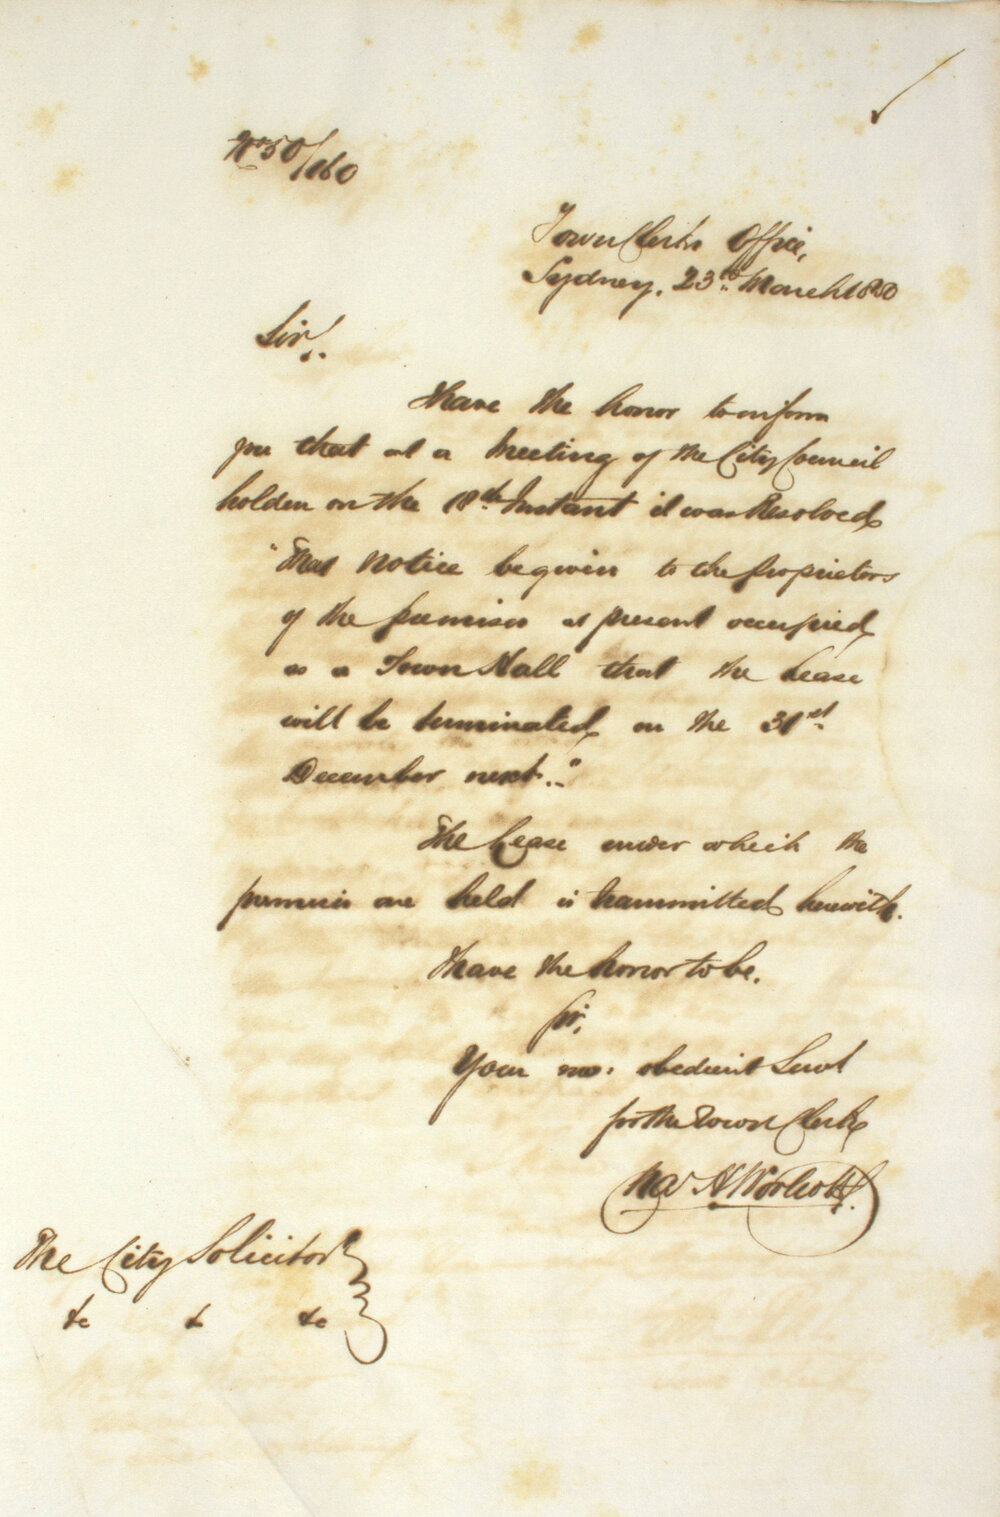 No 50/160
Town Clerks Office,
Sydney, 23rd March 1850
Sir,
I have the honor to inform
you that at a Meeting of the City Council
holden on the 18th Instant it was Resolved
"That Notice be given to the proprietors
of the premises at present occupied
as a Town Hall that the Lease
will be terminated on the 31st
December next."
The Lease under which the
premises are held is transmitted herewith.
I have the honor to be,
Sir,
Your mo: obedient Servt
for the Town Clerk
The City Solicitor
&c & &c